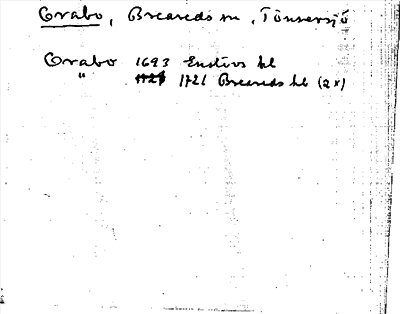 Orabo, Breareds sn, Tönnersjö
Orabo 1693 Enslövs kl
" 1721 Breareds kb (2x)